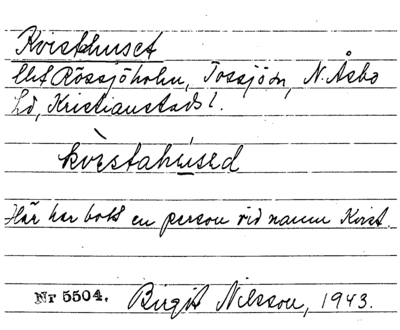 Kvisthuset
Ebt Rössjöholm, Tossjöm, N. Åsbo
hd, Kristianstads l.
kvistahùsed
Här har bott en person vid namn Kvist.
Nr 5504. Birgit Nilsson, 1943.